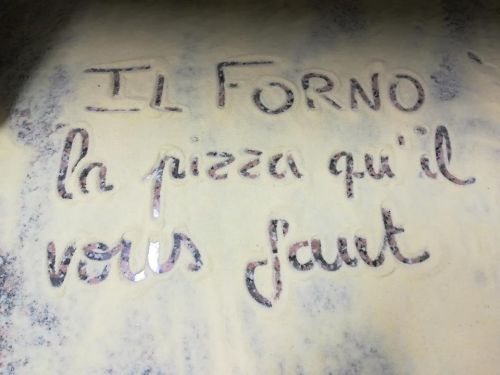 IL FORNO
la pizza qu'il
vous faut